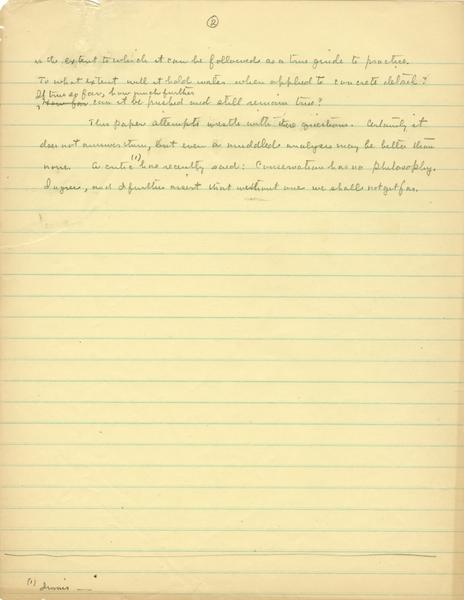 ②
is the extent to which it can be followed as a true guide to practice.
To what extent will it hold water when applied to concrete detail?
If true so far, how much further
How far can it be pushed and still remain true?
This paper attempts wrestle with these questions. Certainly it
does not answer them, but even a muddled analysis may be better than
none. A critic (1) has recently said: Conservation has no philosophy.
I agree, and I further assert that without one we shall not get far.
(1)